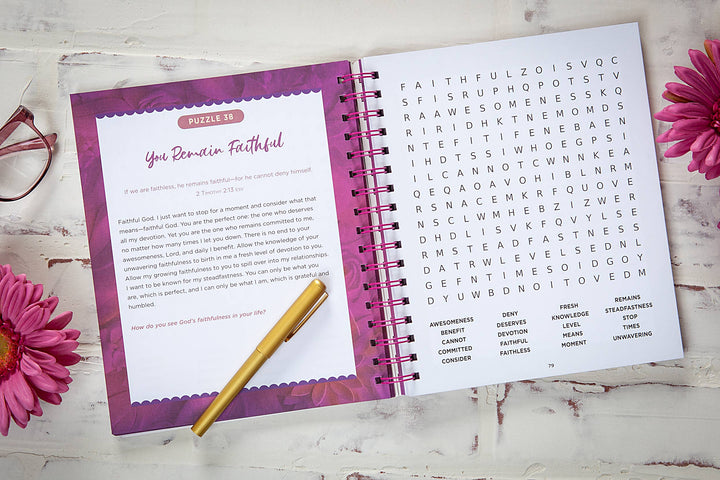 PUZZLE 38
You Remain Faithful
If we are faithless, he remains faithful—for he cannot deny himself.
2 TIMOTHY 2:13 ESV
Faithful God, I just want to stop for a moment and consider what that
means—faithful God. You are the perfect one: the one who deserves
all my devotion. Yet you are the one who remains committed to me,
no matter how many times I let you down. There is no end to your
awesomeness, Lord, and daily I benefit. Allow the knowledge of your
unwavering faithfulness to birth in me a fresh level of devotion to you.
Allow my growing faithfulness to you to spill over into my relationships.
I want to be known for my steadfastness. You can only be what you
are, which is perfect, and I can only be what I am, which is grateful and
humbled.
How do you see God's faithfulness in your life?
F A I T H F U L Z O I S V Q C
S F I S R U P H Q P O T S T V
R A A W E S O M E N E S S K Q
R I R I D H K T N E M O M D S
N T E F I T I F E N E B A E N
I H D T S S I W H O E G P S I
I L C A N N O T C W N N K E A
Q E Q A O A V O H I B L N R M
R S N A C E M K R F Q U O V E
N S C L W M H E B Z I Z W E R
D H D L I S V K F Q V Y L S E
R M S T E A D F A S T N E S S
D A T R W L E V E L S E D N J
G E F N T I M E S O I D G O Y
D Y U W B D N O I T O V E D M
AWESOMENESS DENY FRESH REMAINS
BENEFIT DESERVES KNOWLEDGE STEADFASTNESS
CANNOT DEVOTION LEVEL STOP
COMMITTED FAITHFUL MEANS TIMES
CONSIDER FAITHLESS MOMENT UNWAVERING
79